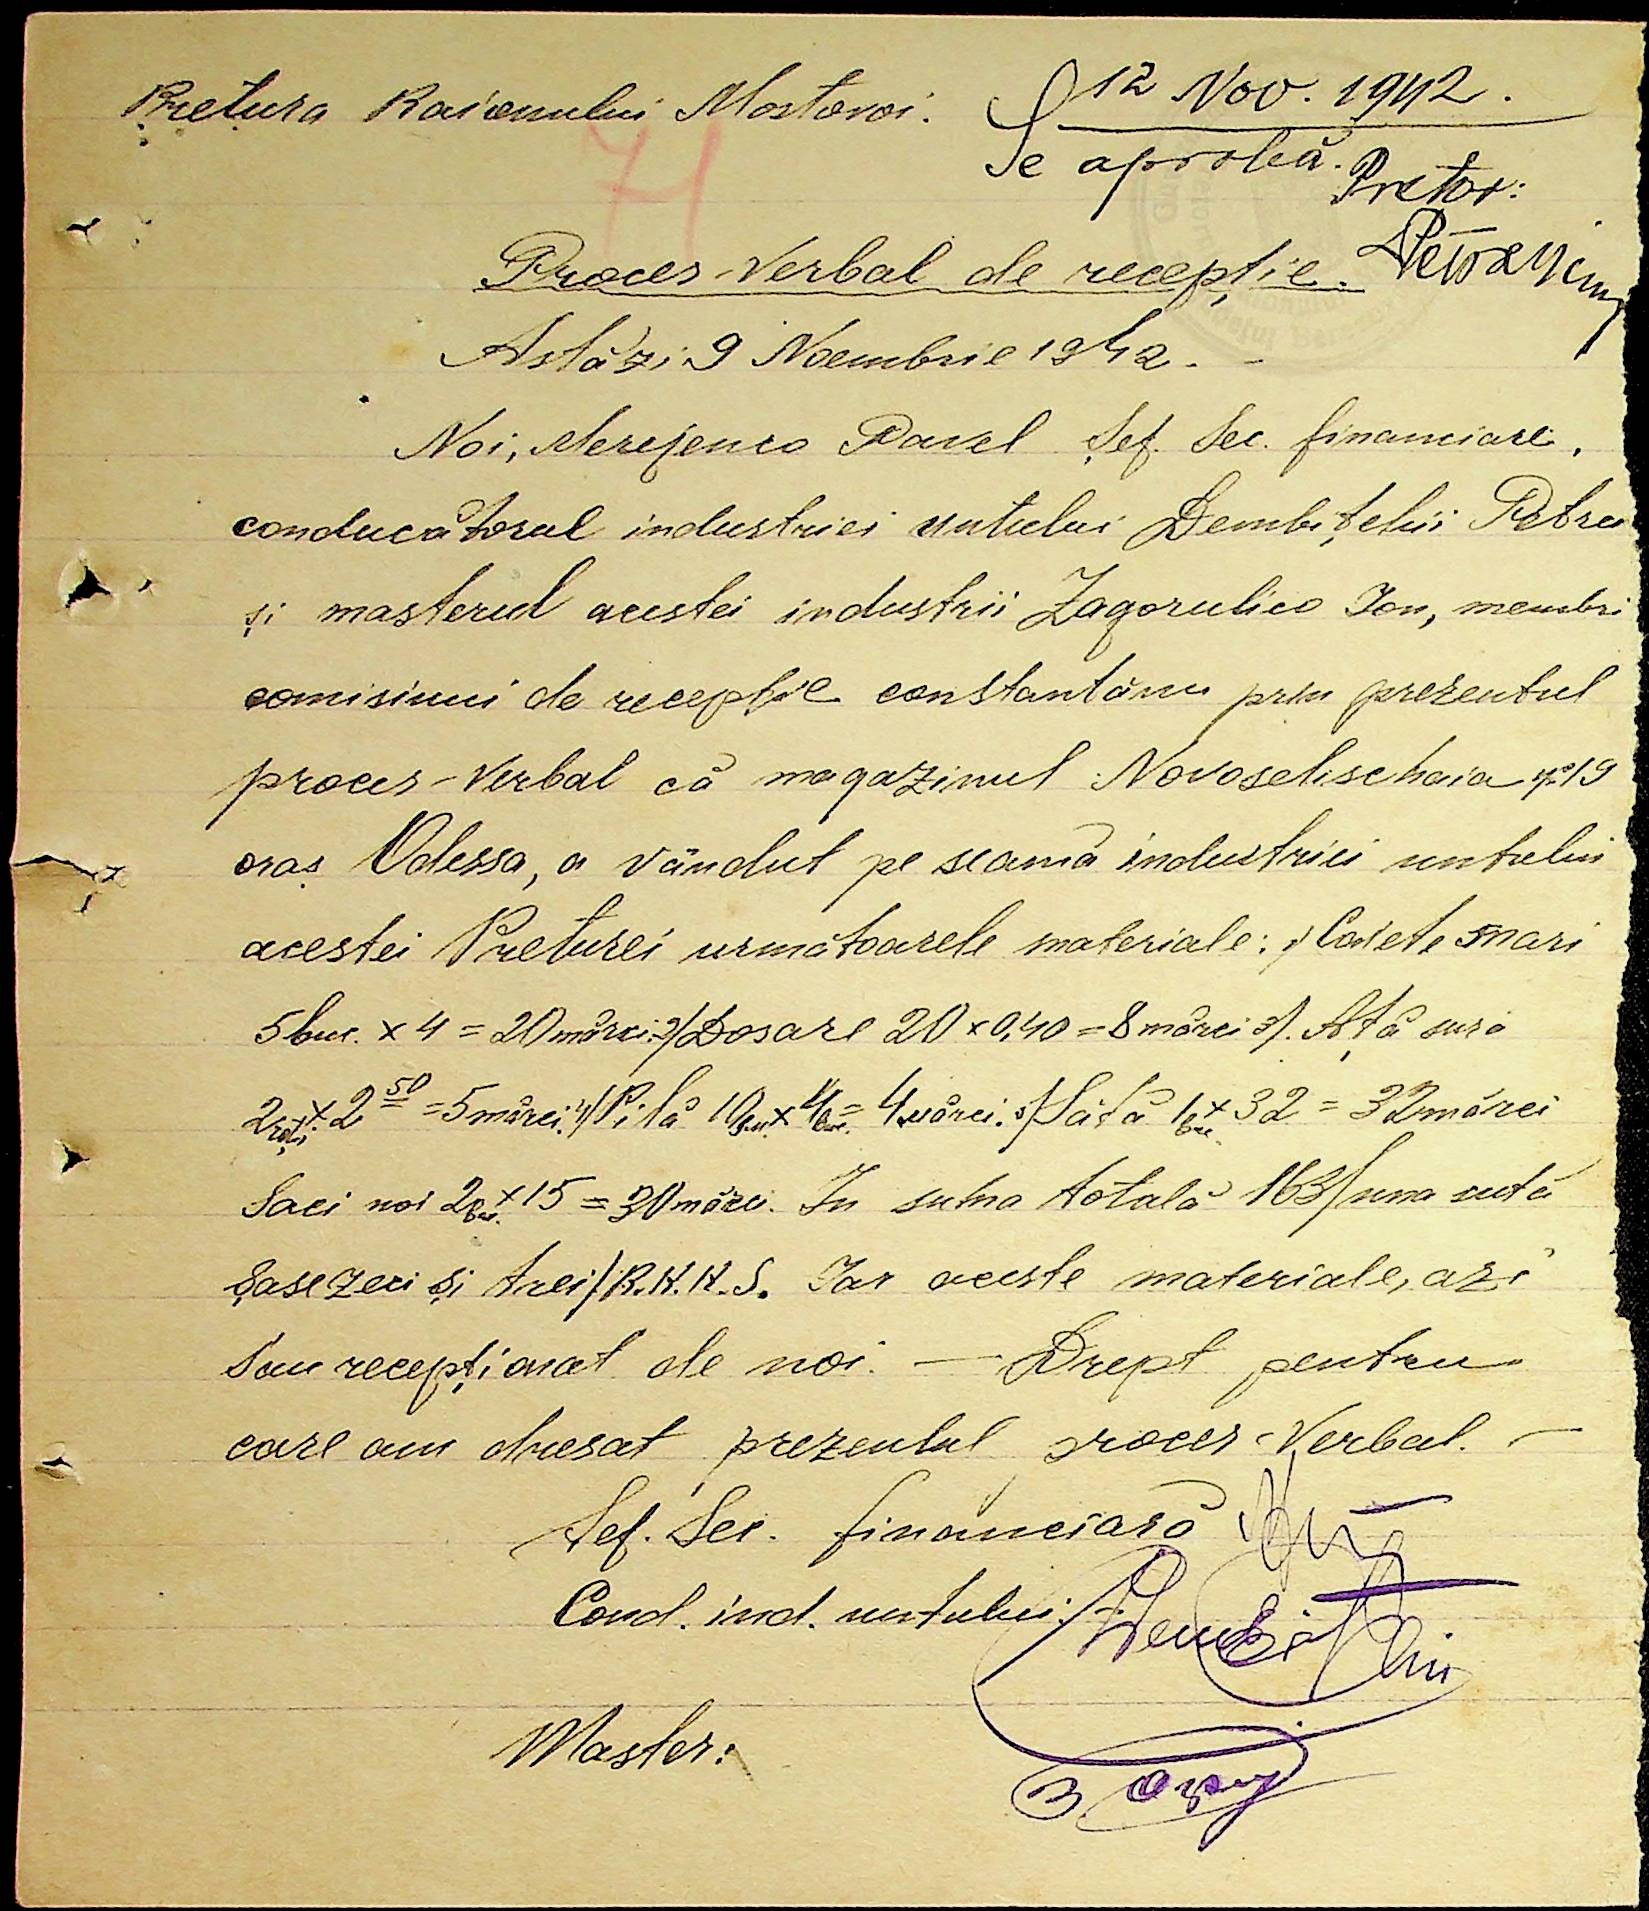 Pretura Raionului Mostovoi.
12 Nov. 1942.
Se aprobă.
Pretor:
71
Proces-Verbal de recepție.
Astăzi 9 Noembrie 1942. -
Noi, Merejenco Pavel Șef. Sec. financiare,
conducătorul industriei untului Dembițchii Petru
și masterul acestei industrii Zagorulico Ion, membri
comisiuni de recepție constantăm prin prezentul
proces-Verbal că magazinul Novoselischaia № 19
oraș Odessa, a vândut pe seamă industriei untului
acestei Preturei următoarele materiale: 1) mari
5 buc. × 4 = 20 mărci. 2) Dosare 20 × 0,40 = 8 mărci 3). Ață sură
2 × 2 50 = 5 mărci. 4) Pilă = 4 mărci. 5) Sâtă 1 buc. × 32 = 32 mărci
Saci noi 2 buc. × 15 = 30 mărci. In suma totală 163/una sută
șasezeci și trei/R.K.K.S. Iar aceste materiale, azi
sau recepționat de noi. — Drept pentru
care am dresat prezentul proces-Verbal. —
Șef. Sec. financiară
Cond. ind. untului
Master: